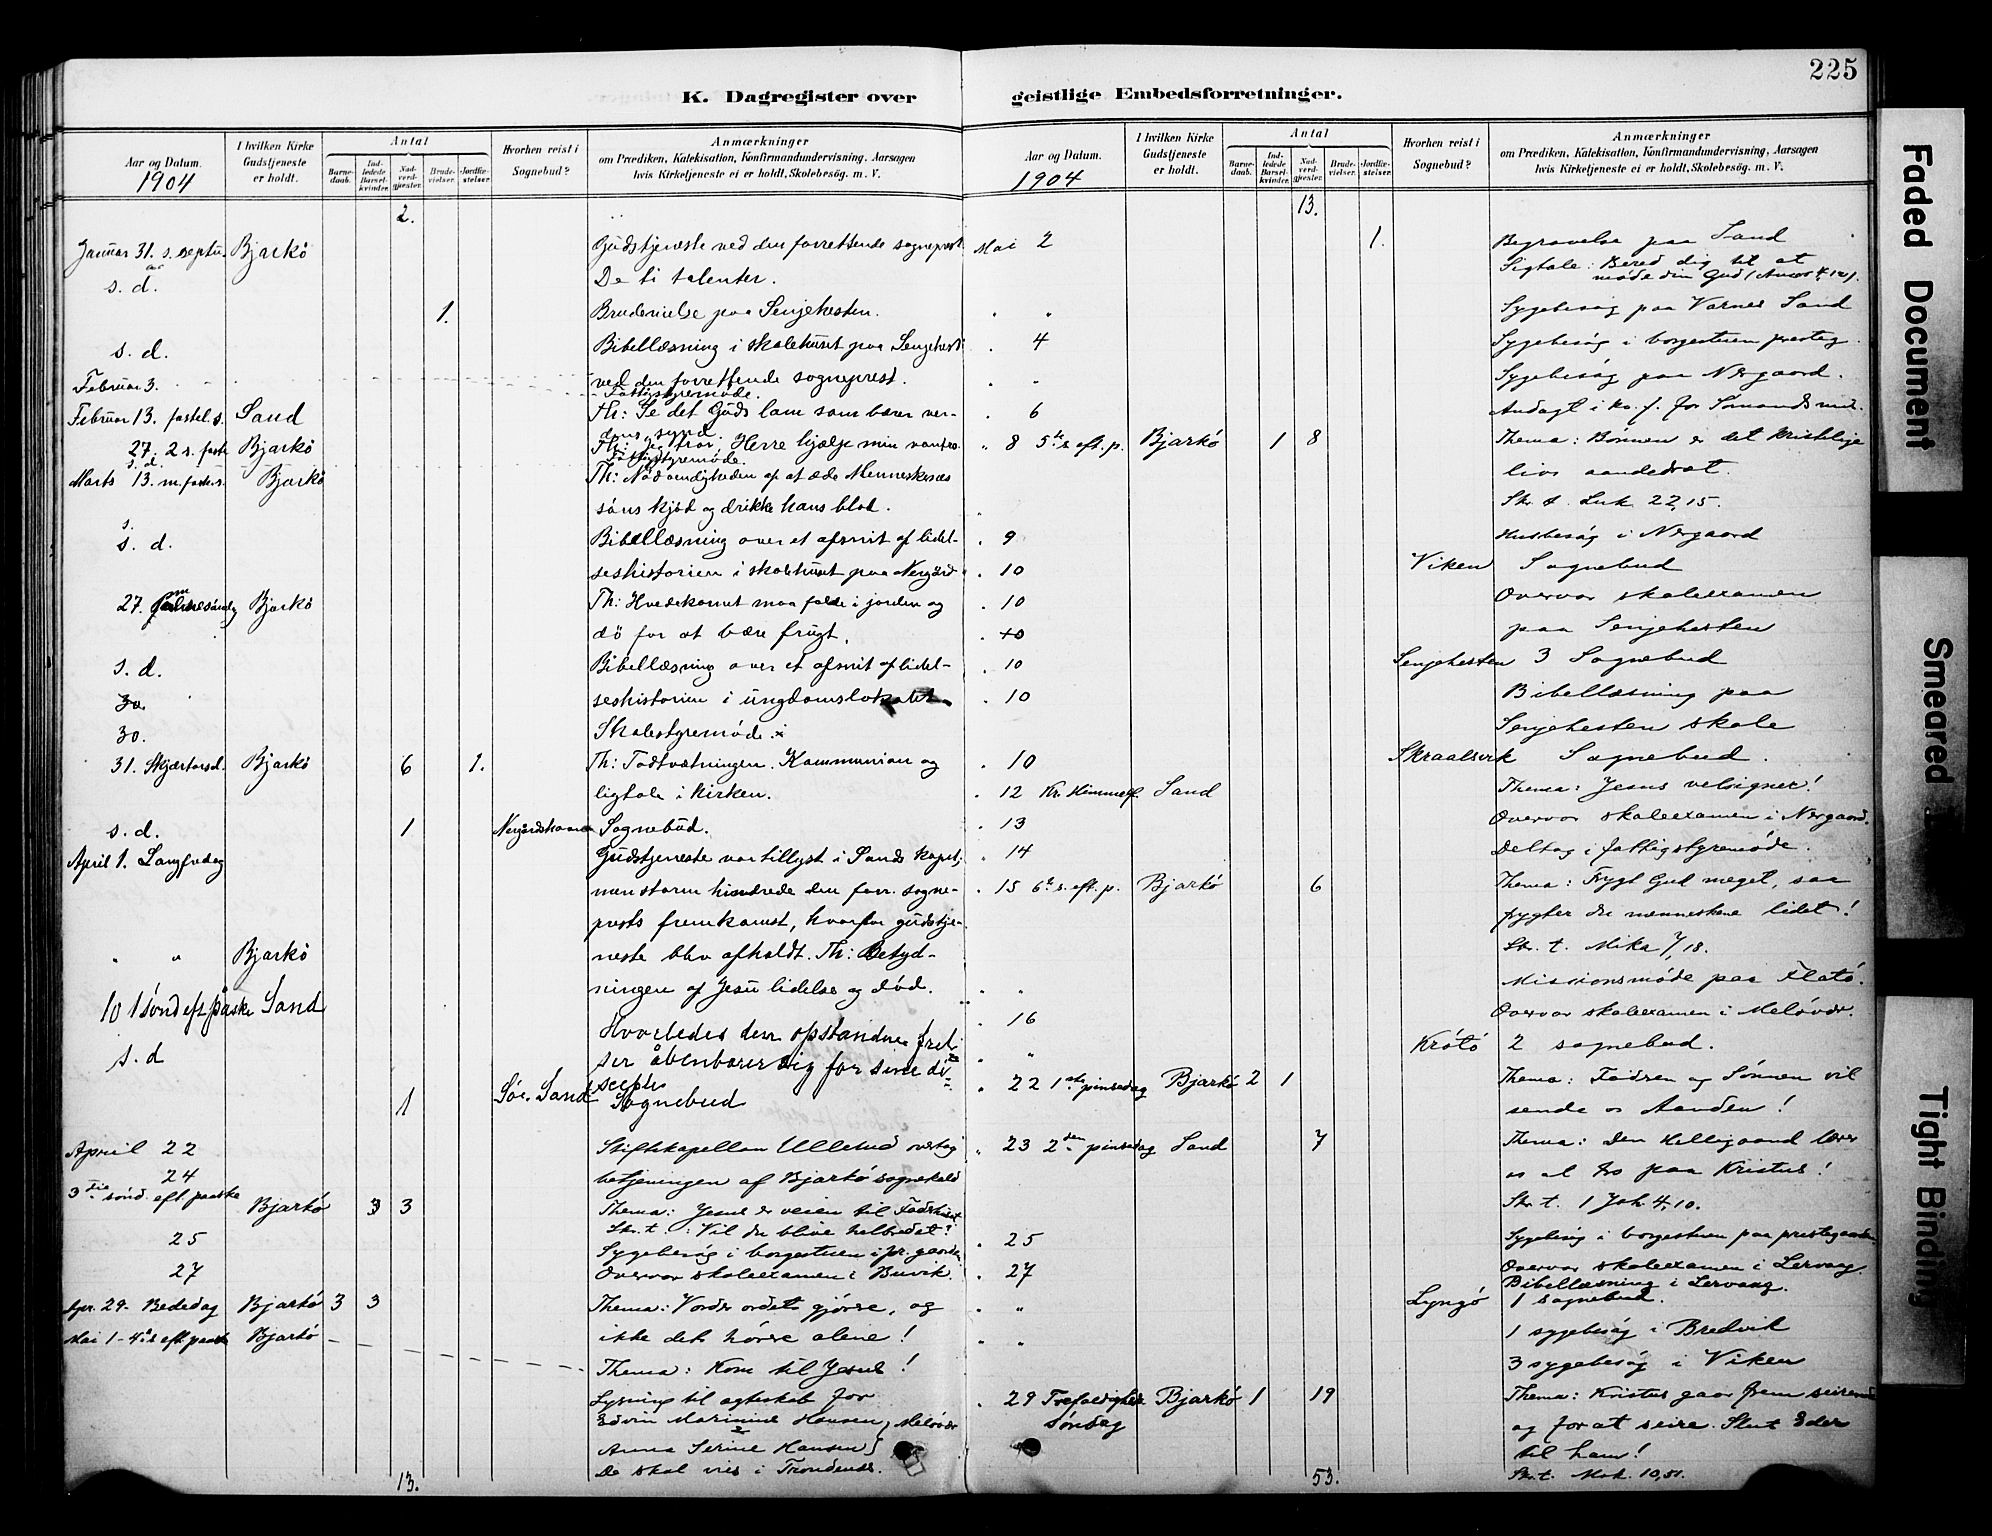 225
K. Dagregister over geistlige Embedsforretninger.
Aar og Datum.
1904
I hvilken Kirke Gudstjeneste er holdt.
Antal
Barnedaab.
Indledede Barselkvinder.
Nadverdgjester.
Brudevielser.
Jordfæstelser.
Hvorhen reist i Sognebud?
Anmærkninger
om Prædiken, Katekisation, Konfirmandundervisning, Aarsagen
hvis Kirketjeneste ei er holdt, Skolebesøg. m. V.
2.
Januar 31. s. septu. Bjarkö Gudstjeneste ved den forrettende sogneprest
s. d. De ti talenter.
1. Brudevielse paa Senjehesten.
s. d. Bibellæsning i skolehuset paa Senjehest
Februar 3. ved den forrettende sogneprest.
Fattigstyremöde.
Februar 13. fastel.s. Sand Th: Se det Guds lam som bærer ver-
dens synd.
27. 2 s. faste Bjarkö Th: Jeg tror, Herre hjælp min vantro
s. d. Fattigstyremøde.
Marts 13. m. faste.s. Bjarkö Th: Nödvendigheden af at æde Menneskenes
söns kjöd og drikke hans blod.
s. d. Bibellæsning over et afsnit af lidel-
seshistorien i skolehuset paa Nergård
27. palmesöndg Bjarkö Th: Hvedekornet maa falde i jorden og
dö for at bære frugt.
s. d. Bibellæsning over et afsnit af lidel-
30. seshistorien i ungdomslokalet.
30. Skolestyremöde.
31. Skjærtorsd. Bjarkö 6 1. Th: Fodtvætningen. Kommunion og
ligtale i kirken.
s. d. 1 Sognebud.
April 1. Langfredag Gudstjeneste var tillyst i Sands kapel,
men storm hindrede den forr. sogne-
prests fremkomst, hvorfor gudstje-
" " Bjarkö neste blev afholdt. Th: Betyd-
ningen af Jesu lidelse og död.
10 1 sönd eft påske Sand Hvorledes den opstandne frel-
ser åbenbarer sig for sine di-
sciple
s. d 1 Sör. Sand Sognebud
April 22 Stiftskapellan Ullestad overtog
24 betjeningen af Bjarkö sognekald
3die sönd. eft. paaske Bjarkö 3 3 Thema: Jesus er veien til Faderhuset
Skr. t.: Vil du blive helbredet?
25 Sygebesög i borgestuen i pr. gaarden
27 Overvar skoleexamen i Buvik.
Apr. 29- Bededag Bjarkö 3 3 Thema: Vorder ordets gjörere, og
Mai 1- 4de s eft. paaske Bjarkö ikke dets hörere alene!
Thema: Kom til Jesus!
Lysning til ægteskab for
Edvin Marinius Hansen } Melövær
&
Anna Serine Hansen
De skal vies i Trondenes.
13.
Aar og Datum.
1904
I hvilken Kirke Gudstjeneste er holdt.
Antal
Barnedaab.
Indledede Barselkvinder.
Nadverdgjester.
Brudevielser.
Jordfæstelser.
Hvorhen reist i Sognebud?
Anmærkninger
om Prædiken, Katekisation, Konfirmandundervisning, Aarsagen
hvis Kirketjeneste ei er holdt, Skolebesøg. m. V.
13.
Mai 2 1. Begravelse paa Sand
Ligtale: Bered dig til at
möde din Gud (Amos 4,12).
" " Sygebesög paa Sand
" 4 Sygebesög i borgestuen presteg.
" " Sygebesög paa Nergaard.
" 6 Andagt i for Sömandsmis.
" 8 5te s. eft. p. Bjarkö 1 8 Thema: Bönnen er det kristelige
livs aandedræt.
Skr. t. Luk 22,15.
" 9 Husbesög i Nergaard
" 10 Viken Sognebud
" 10 Overvar skoleexamen
" 10 paa Senjehesten
" 10 Senjehesten 3 Sognebud
" 10 Bibellæsning paa
Senjehesten skole
" 10 Skraalsvik Sognebud.
" 12 Kr. Himmelf. Sand Thema: Jesus velsigner!
" 13 Overvar skoleexamen i Nergaard.
" 14 Deltog i fattigstyremöde.
" 15 6te s. eft. p. Bjarkö 6 Thema: Frygt Gud meget, saa
frygter du menneskene lidet!
Skr. t. Mika 7,18.
" " Missionsmöde paa Flatö.
" 16 Overvar skoleexamen i Melövær.
" " Krötö 2 sognebud.
" 22 1ste pinsedag Bjarkö 2 1 Thema: Faderen og Sönnen vil
sende os Aanden!
" 23 2den pinsedag Sand 7 Thema: Den Helligaand lærer
os at tro paa Kristus!
Skr. t. 1 Joh. 4,10.
" 25 Sygebesög i borgestuen paa prestegaarden
" 27 Overvar skoleexamen i Lervaag.
Bibellæsning i Lervaag.
" " Lyngö 1 sognebud.
" " 1 sygebesög i Bredvik
3 sygebesög i Viken
" 29 Trefoldigheds Söndag Bjarkö 1 19 Thema: Kristus gaar frem seirende
og for at seire. Slut Eder
til ham!
Skr. t. Mrk. 10,51.
53.
Faded Document
Smeared
Tight Binding